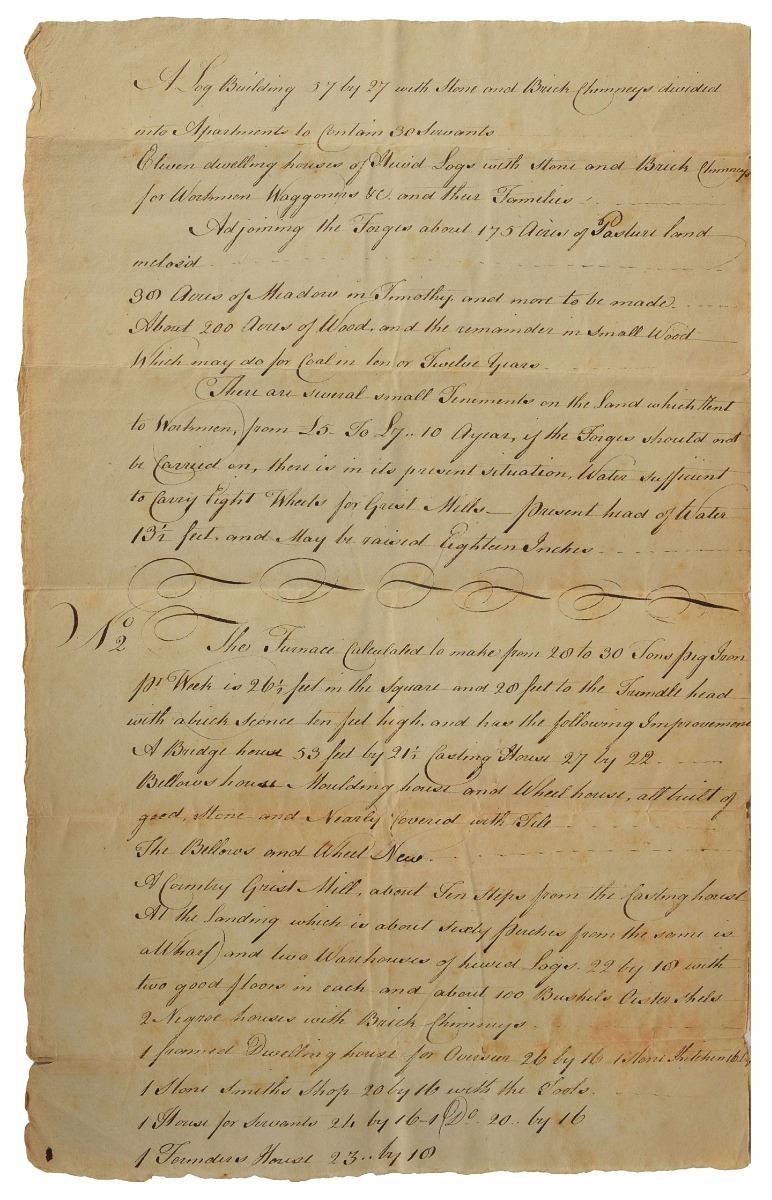 A Log Building 37 by 27 with Stone and Brick Chimneys divided
into Apartments to Contain 30 Servants
Eleven dwelling houses of Hewd Logs with Stone and Brick Chimneys
for Workmen Waggoners &C. and their Families
Adjoining the Forges about 175 Acres of Pasture land
inclosd
38 Acres of Meadow in Timothy, and more to be made.
About 200 Acres of Wood, and the remainder in small Wood
Which may do for Coal in ten or Twelve Years
There are several small Tenements on the Land which Rent
to Workmen, from £5 To £7.. 10 A year, if the Forges should not
be Carried on, there is in its present situation, Water sufficient
to Carry Eight Wheels for Grist Mills— present head of Water
13½ feet, and May be raised Eighteen Inches
No 2 The Furnace Calculated to make from 28 to 30 Tons pig Iron
pr Week is 26½ feet in the Square and 28 feet to the Trundle head
with a brick sconce ten feet high, and has the following Improvement
A Bridge house 53 feet by 21½ Casting House 27 by 22
Bellows house Moulding house and Wheel house, all built of
good, Stone and Nearly Covered with Tile
The Bellows and Wheel New.
A Country Grist Mill, about Ten Steps from the Casting house
At the Landing which is about sixty perches from the same is
a Wharf and two Warehouses of hewed Logs. 22 by 18 with
two good floors in each and about 100 Bushels Oister shels
2 Negroe houses with Brick Chimneys
1 framed Dwelling house for Overseer 26 by 16 1 Stone Kitchen 16 by
1 Stone Smiths Shop 20 by 16 with the Tools.
1 House for Servants 24 by 16—1 Do. 20.. by 16
1 Founders House 23.. by 18